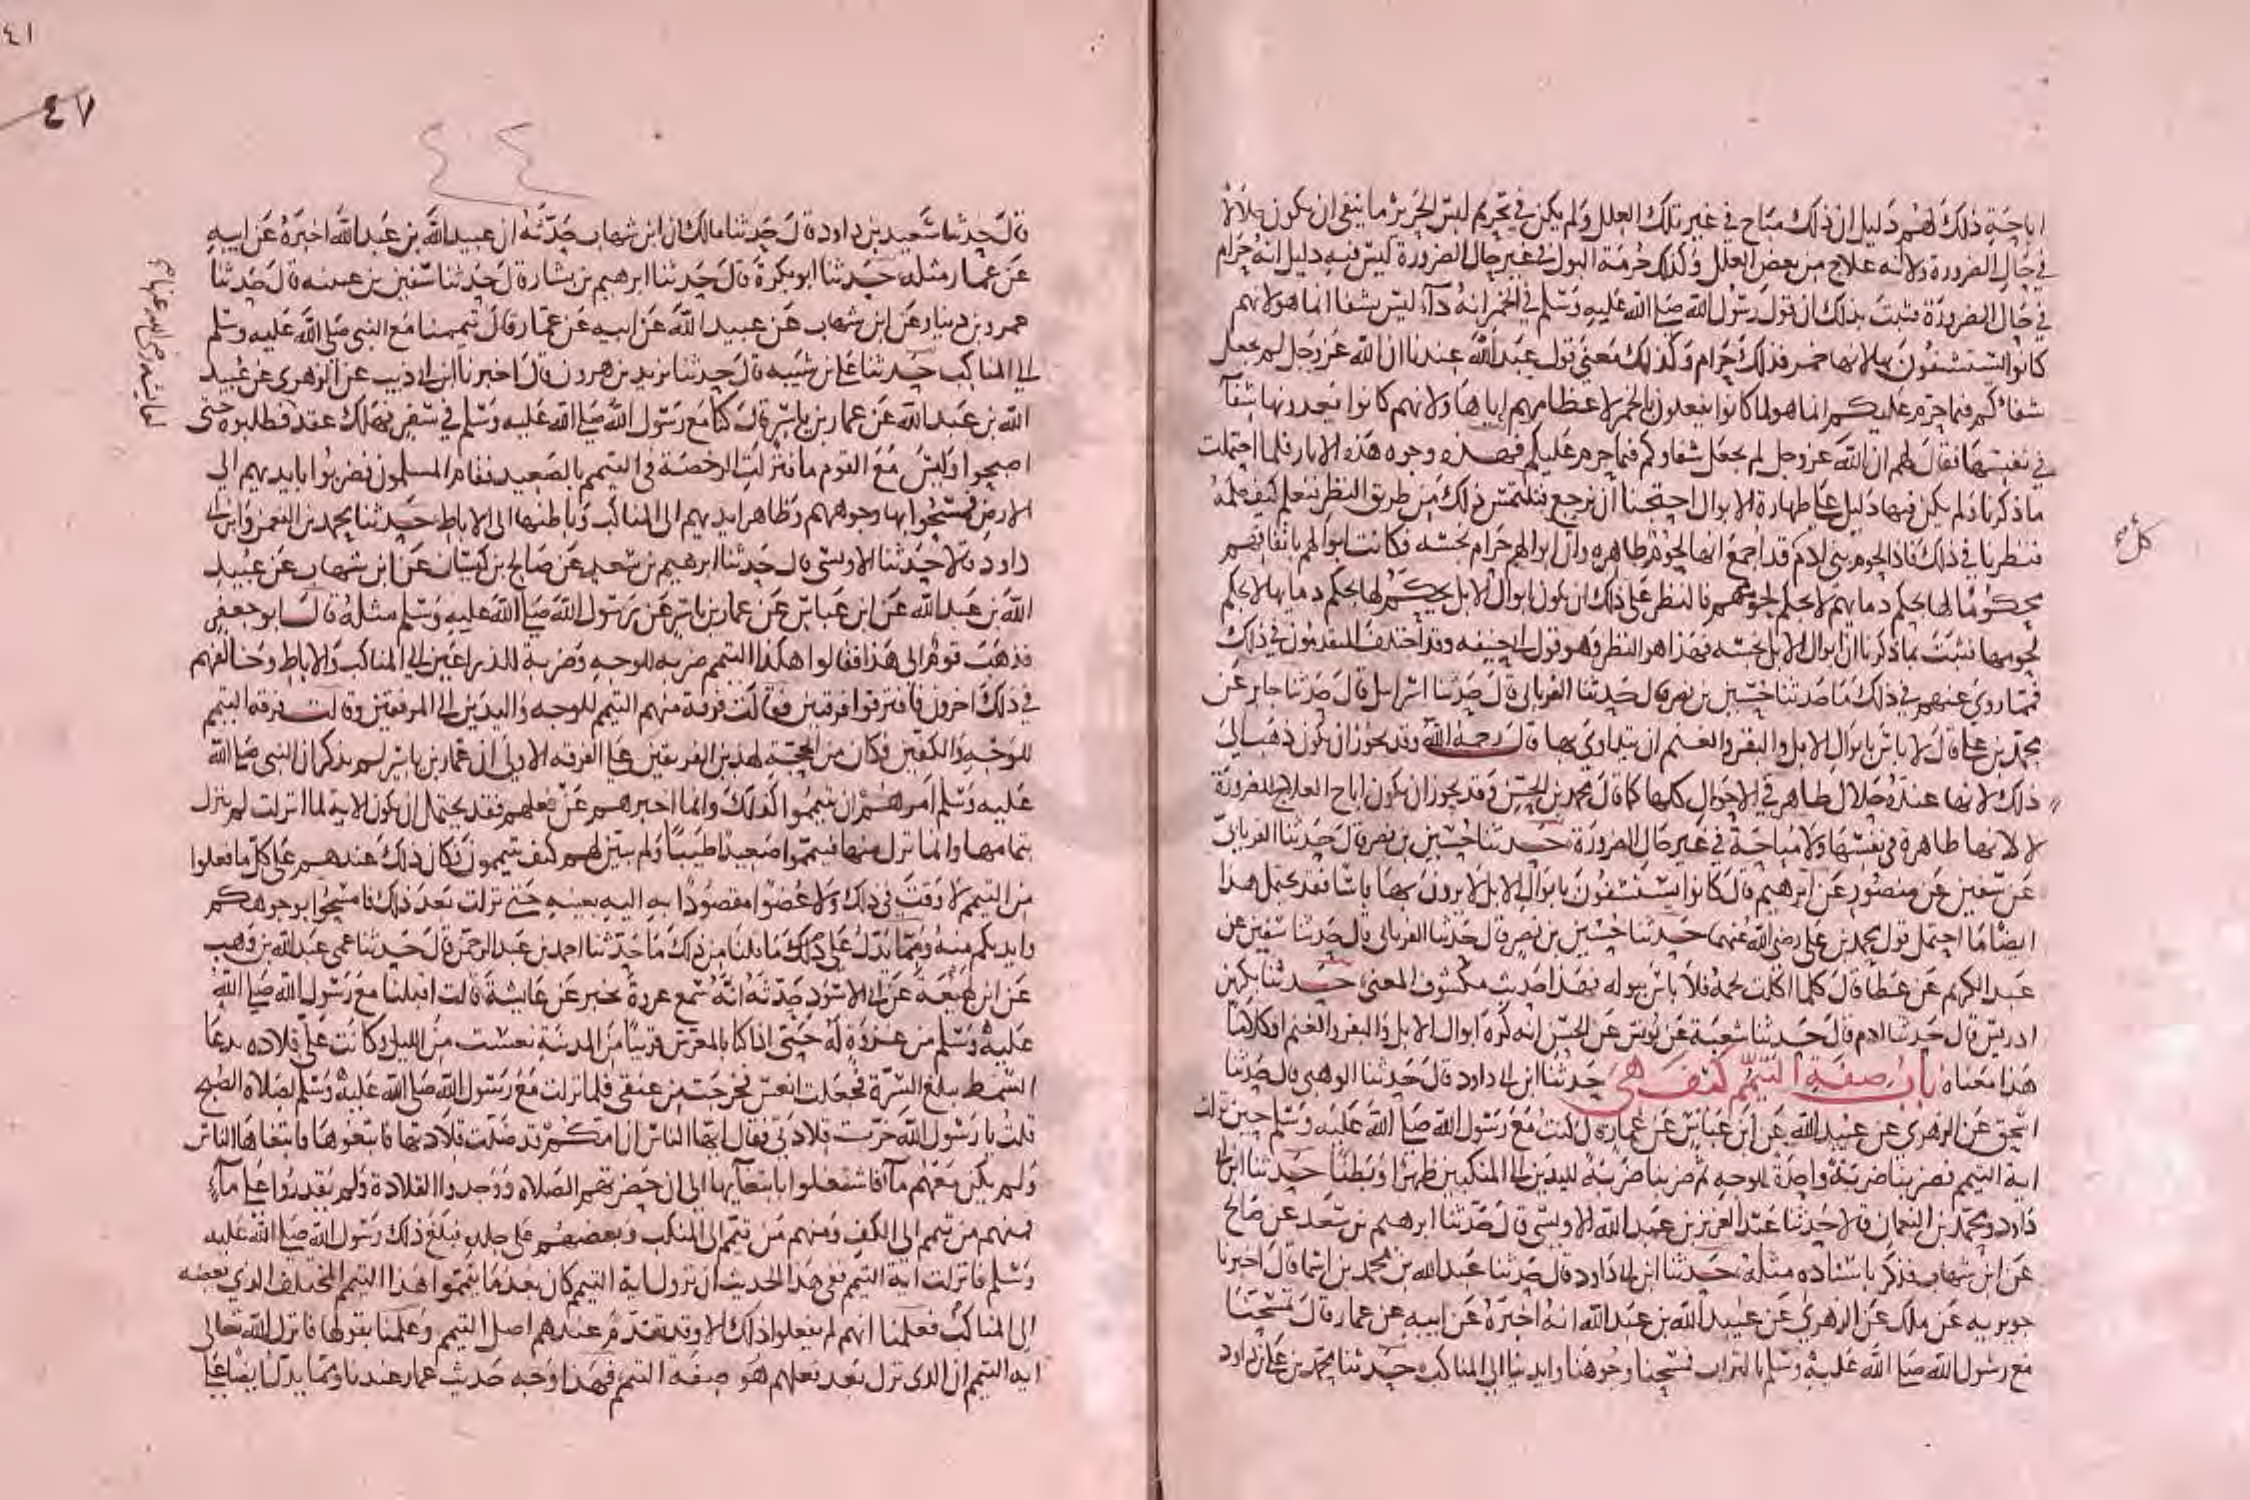 اباحة ذلك لهم دليل ان ذلك مباح في غير تلك العلل ولم يكن في تحريم لبس الحرير ما ينفي ان يكون حلالا
في حال الضرورة ولانه علاج من بعض العلل وكذلك حرمة البول في غير حال الضرورة ليس فيه دليل انه حرام
في حال الضرورة فثبت بذلك ان قول رسول الله صلى الله عليه وسلم في الخمر انه دآء ليس بشفا انما هو لانهم
كانوا يستشفون بها لانها خمر فذلك حرام وكذلك معنى قول عبد الله عندنا ان الله عز وجل لم يجعل
شفائكم فيما حرم عليكم انما هو لما كانوا يفعلون بالخمر لاعظامهم اياها ولانهم كانوا يعدونها شفآ
في نفسها فقال لهم ان الله عز وجل لم يجعل شفاوكم فيما حرم عليكم فهذه وجوه هذه الاثار فلما احتملت
ما ذكرنا ولم يكن فيها دليل على طهارة الابوال احتجنا ان نرجع فنلتمس ذلك من طريق النظر فنعلم كيف حكمه
فنظرنا في ذلك فاذا لحوم بني ادم قد اجمع انها لحوم طاهره وان ابوالهم حرام نجسه فكانت ابوالهم باتفاقهم
محكوما لها بحكم دمايهم لا بحكم لحومهم فالنظر على ذلك ان يكون ابوال الابل يحكم لها بحكم دمايها لا بحكم
لحومها فثبت بما ذكرنا ان ابوال الابل نجسه فهذا هو النظر وهو قول ابي حنيفه وقد اختلف المتقدمون في ذلك
فمما روي عنهم في ذلك ما حدثنا حسين بن نصر قال حدثنا الفريابي قال حدثنا اسرايل قال حدثنا جابر عن
محمد بن علي قال لا باس بابوال الابل والبقر والغنم ان يتداوى بها قال رحمه الله وقد يجوز ان يكون ذهب الى
ذلك لانها عنده حلال طاهر في الاحوال كلها كما قال محمد بن الحسن وقد يجوز ان يكون اباح العلاج للضرورة
لا لانها طاهرة في نفسها ولا مباحة في غير حال الضرورة حدثنا حسين بن نصر قال حدثنا الفريابي
عن سفين عن منصور عن ابرهيم قال كانوا يستشفون بابوال الابل لا يرون بها باسا فقد يحتمل هذا
ايضا ما احتمل قول محمد بن علي رضي الله عنهما حدثنا حسين بن نصر قال حدثنا الفريابي قال حدثنا سفين عن
عبد الكريم عن عطا قال كلما اكلت لحمه فلا باس ببوله فهذا حديث مكشوف المعنى حدثنا بكر بن
ادريس قال حدثنا ادم قال حدثنا شعبة عن يونس عن الحسن انه كره ابوال الابل والبقر والغنم او كلاما
هذا معناه باب صفة التيمم كيف هي حدثنا ابن ابي داود قال حدثنا الوهبي قال حدثنا
اسحق عن الزهري عن عبيد الله عن ابن عباس عن عمار قال كنت مع رسول الله صلى الله عليه وسلم حين نزلت
اية التيمم فضربنا ضربة واحدة للوجه ثم ضربنا ضربة لليدين الى المنكبين ظهرا وبطنا حدثنا ابن ابي
داود ومحمد بن النعمان قالا حدثنا عبد العزيز بن عبد الله الاويسي قال حدثنا ابرهيم بن سعد عن صالح
عن ابن شهاب فذكر باسناده مثله حدثنا ابن ابي داود قال حدثنا عبد الله بن محمد بن اسما قال اخبرنا
جويريه عن ملك عن الزهري عن عبيد الله بن عبد الله انه اخبره عن ابيه عن عمار قال تمسحنا
مع رسول الله صلى الله عليه وسلم بالتراب فمسحنا وجوهنا وايدينا الى المناكب حدثنا محمد بن علي بن داود
كل صح
٤١
٤٧
٤٤
قال حدثنا سعيد بن داود قال حدثنا مالك ان ابن شهاب حدثه ان عبيد الله بن عبد الله اخبره عن ابيه
عن عمار مثله حدثنا ابو بكرة قال حدثنا ابرهيم بن بشار قال حدثنا سفين بن عيينه قال حدثنا
عمرو بن دينار عن ابن شهاب عن عبيد الله عن ابيه عن عمار قال تيممنا مع النبي صلى الله عليه وسلم
الى المناكب حدثنا علي بن شيبه قال حدثنا يزيد بن هرون قال اخبرنا ابن ابي ذيب عن الزهري عن عبيد
الله بن عبد الله عن عمار بن ياسر قال كنا مع رسول الله صلى الله عليه وسلم في سفر فهلك عقد فطلبوه حتى
اصبحوا وليس مع القوم ما فنزلت الرخصة في التيمم بالصعيد فقام المسلمون فضربوا بايديهم الى
الارض فمسحوا بها وجوههم وظاهر ايديهم الى المناكب وباطنها الى الاباط حدثنا محمد بن النعمن وابن ابي
داود قالا حدثنا الاويسي قال حدثنا ابرهيم بن سعد عن صالح بن كيسان عن ابن شهاب عن عبيد
الله بن عبد الله عن ابن عباس عن عمار بن ياسر عن رسول الله صلى الله عليه وسلم مثله قال ابو جعفر
فذهب قوم الى هذا فقالوا هكذا التيمم ضربه للوجه وضربة للذراعين الى المناكب والاباط وخالفهم
في ذلك اخرون فافترقوا فرقتين فقالت فرقة منهم التيمم للوجه واليدين الى المرفقين وقالت فرقه التيمم
للوجه والكفين فكان من الحجة لهذين الفريقين على الفرقه الاولى ان عمار بن ياسر لم يذكر ان النبي صلى الله
عليه وسلم امرهم ان يتيمموا كذلك وانما اخبرهم عن فعلهم فقد يحتمل ان يكون الاية لما انزلت لم ينزل
بتمامها وانما نزل منها فتيمموا صعيدا طيبا ولم يبين لهم كيف يتيممون فكان ذلك عندهم على كل ما فعلوا
من التيمم لا وقت في ذلك ولا عضوا مقصودا به اليه بعينه حتى نزلت بعد ذلك فامسحوا بوجوهكم
وايديكم منه ومما يدل على ذلك ما قلنا من ذلك ما حدثنا احمد بن عبد الرحمن قال حدثنا عمي عبد الله بن وهب
عن ابن لهيعة عن ابي الاسود حدثه انه سمع عروة يخبر عن عايشة قالت اقبلنا مع رسول الله صلى الله
عليه وسلم من غزوة له حتى اذا كنا بالمعرس قريبا من المدينة نعست من الليل وكانت علي قلاده تدعا
السمط تبلغ السرة فجعلت انعس فخرجت من عنقي فلما نزلت مع رسول الله صلى الله عليه وسلم لصلاة الصبح
قلت يا رسول الله خرت قلادتي فقال ايها الناس ان امكم قد ضلت قلادتها فابتغوها فابتغاها الناس
ولم يكن معهم مآ فاشتغلوا بابتغآيها الى ان حضرتهم الصلاه ووجدوا القلادة ولم يقدروا على مآء
فمنهم من تيمم الى الكف ومنهم من تيمم الى المنكب وبعضهم على جلده فبلغ ذلك رسول الله صلى الله عليه
وسلم فانزلت اية التيمم ففي هذا الحديث ان نزول اية التيمم كان بعد ما تيمموا هذا التيمم المختلف الذي بعضه
الى المناكب فعلمنا انهم لم يفعلوا ذلك الا وقد تقدم عندهم اصل التيمم وعلمنا بقولها فانزل الله تعالى
اية التيمم ان الذي نزل بعد فعلهم هو صفة التيمم فهذا وجه حديث عمار عندنا ومما يدل ايضا على
لعايشه رضي الله عنها